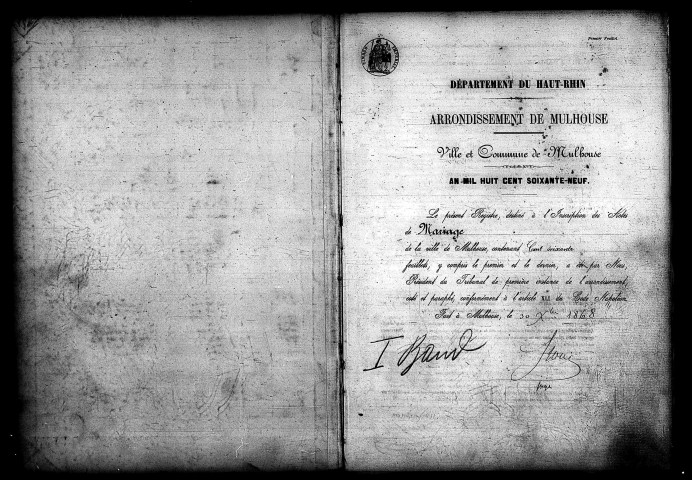 Premier Feuillet.
DÉPARTEMENT DU HAUT-RHIN
ARRONDISSEMENT DE MULHOUSE
Ville et Commune de Mulhouse
AN MIL HUIT CENT SOIXANTE-NEUF.
Le présent Registre, destiné à l'Inscription des Actes
de Mariage
de la ville de Mulhouse, contenant Cent soixante
feuillets, y compris le premier et le dernier, a été par Nous,
Président du Tribunal de première instance de l'arrondissement,
coté et paraphé, conformément à l'article XLI du Code Napoléon.
Fait à Mulhouse, le 30 Xbre 1868
I Band
juge